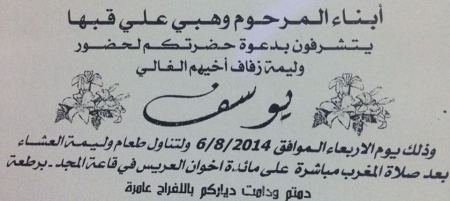 أبناء المرحوم وهبي علي قبها
يتشرفون بدعوة حضرتكم لحضور
وليمة زفاف أخيهم الغالي
يوسف
وذلك يوم الاربعاء الموافق 6/8/2014 ولتناول طعام وليمة العشاء
بعد صلاة المغرب مباشرة على مائدة اخوان العريس في قاعة المجد - برطعة
دمتم ودامت دياركم بالافراح عامرة